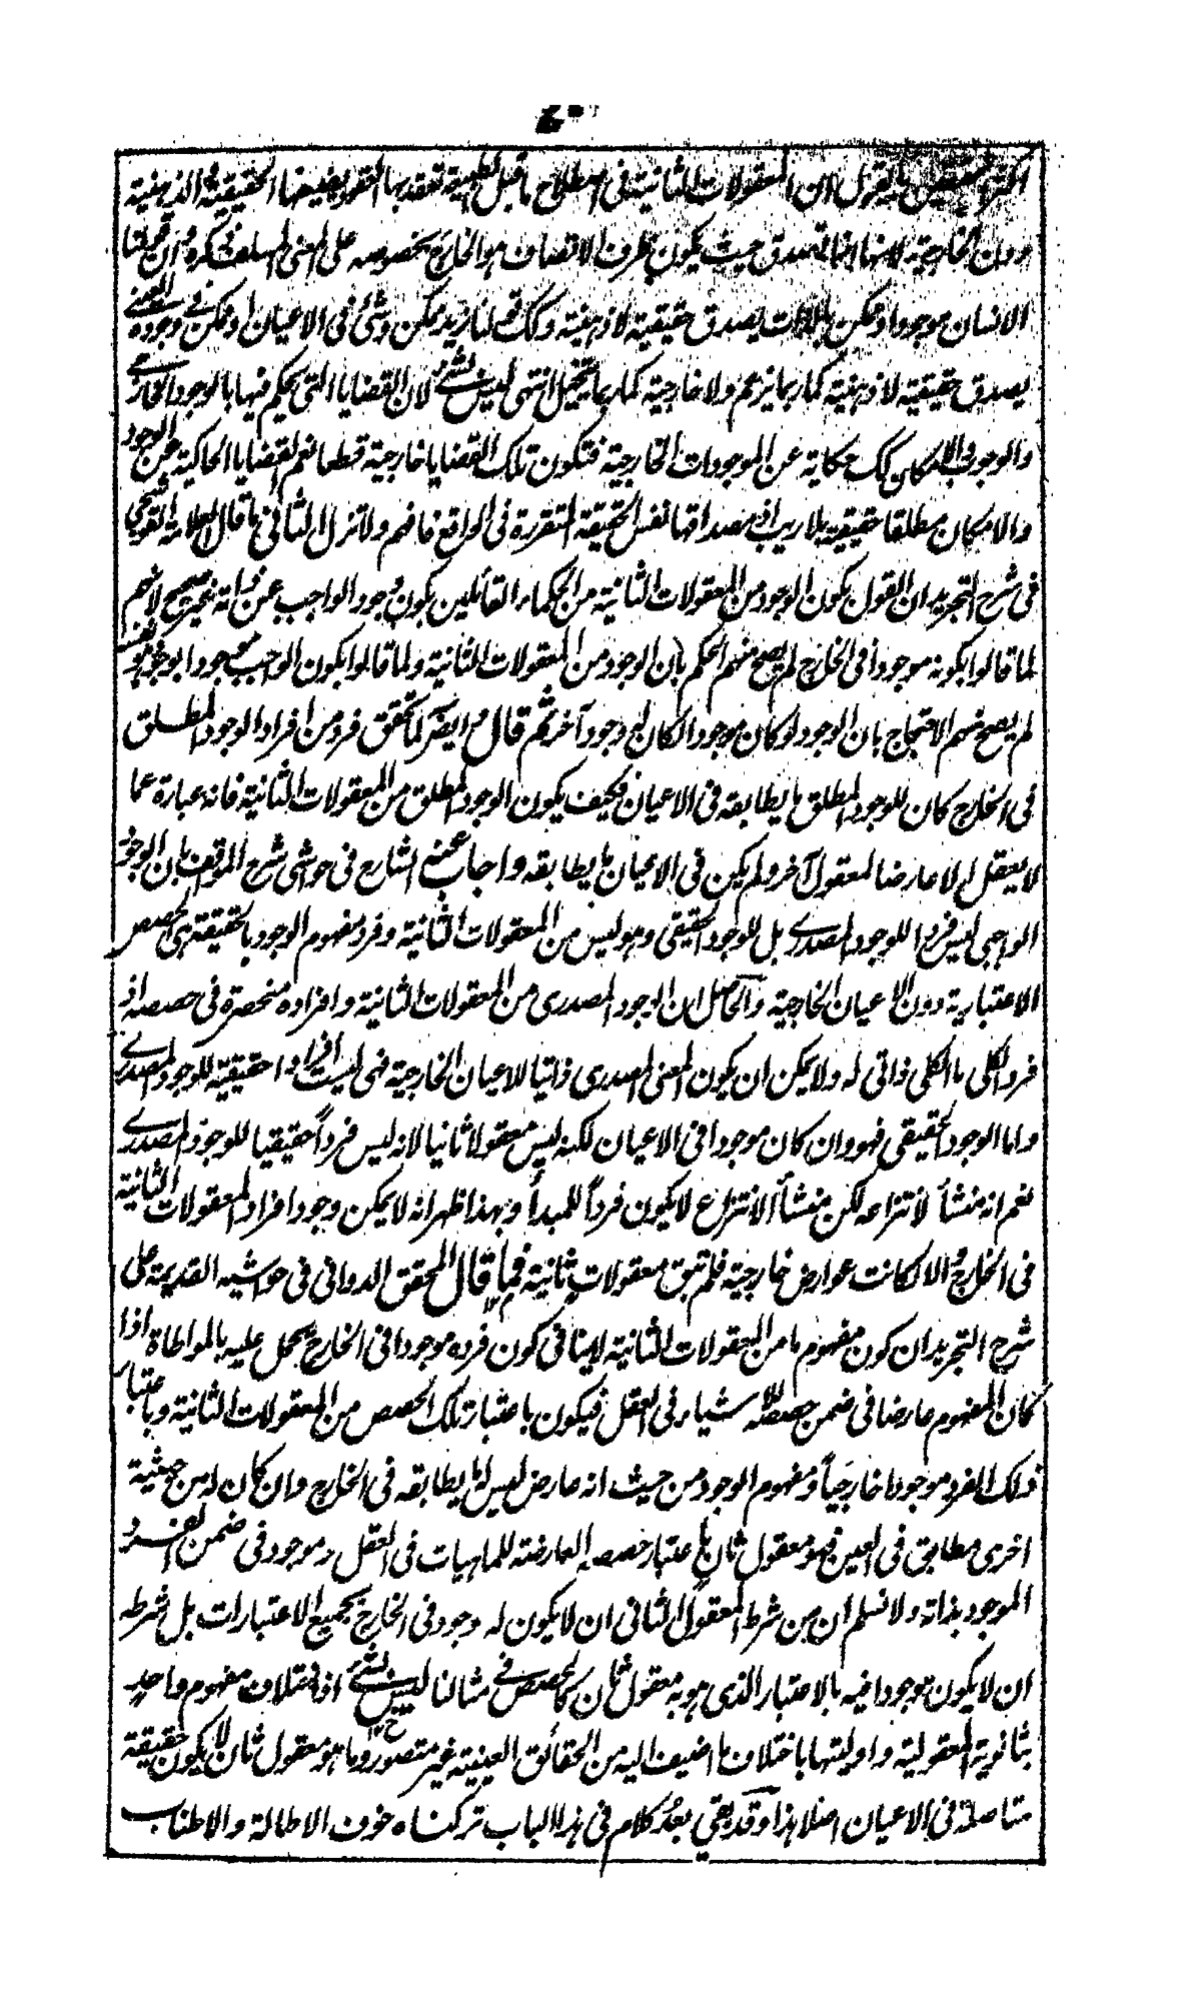 ان المعقولات الثانية فى اصطلاح ما قبل الطبيعة تعقد بها العقود الحقيقية الذهنية
دون الخارجية لانها انما تصدق حيث يكون ظرف الاتصاف هو الخارج بخصوصه على المعنى المسلف ذكره وان قولنا
الانسان موجود او ممكن بالذات يصدق حقيقية لا ذهنية وكك قولنا زيد ممكن وشئ فى الاعيان او ممكن فى وجوده العينى
يصدق حقيقية لا ذهنية كما ربما يزعم ولا خارجية كما ربما يتخيل انتهى ليس بشئ لان القضايا التى يحكم فيها بالوجود الخارجى
والوجوب والامكان كك حكاية عن الموجودات الخارجية فتكون تلك القضايا خارجية قطعا نعم القضايا الحاكية عن الوجود
والامكان مطلقا حقيقية بلا ريب اذ مصداقها نفس الحقيقة المتقررة فى الواقع فافهم ولا تزل الثانى ما قال العلامة القوشجى
فى شرح التجريد ان القول بكون الوجود من المعقولات الثانية من الحكماء القائلين بكون وجود الواجب عين ذاته غير صحيح لانهم
لما قالوا بكونه موجودا فى الخارج لم يصح منهم الحكم بان الوجود من المعقولات الثانية ولما قالوا بكون الواجب موجودا بوجود هو نفسه
لم يصح منهم الاحتجاج بان الوجود لو كان موجودا لكان له وجود آخر ثم قال وايضا لما تحقق فرد من افراد الوجود المطلق
فى الخارج كان للوجود المطلق ما يطابقه فى الاعيان فكيف يكون الوجود المطلق من المعقولات الثانية فانه عبارة عما
لا يعقل الا عارضا لمعقول آخر ولم يكن فى الاعيان ما يطابقه واجاب عنه الشارح فى حواشى شرح المواقف بان الوجود
الواجبى ليس فردا للوجود المصدرى بل للوجود الحقيقى وهو ليس من المعقولات الثانية وفرد مفهوم الوجود بالحقيقة هى الحصص
الاعتبارية دون الاعيان الخارجية والحاصل ان الوجود المصدرى من المعقولات الثانية وافراده منحصرة فى حصصه اذ
فرد الكلى ما الكلى ذاتى له ولا يمكن ان يكون المعنى المصدرى ذاتيا للاعيان الخارجية فهى ليست افرادا حقيقية للوجود المصدرى
واما الوجود الحقيقى فهو وان كان موجودا فى الاعيان لكنه ليس معقولا ثانيا لانه ليس فردا حقيقيا للوجود المصدرى
نعم انه منشأ لانتزاعه لكن منشأ الانتزاع لا يكون فرداً للمبدأ وبهذا ظهر انه لا يمكن وجود افراد المعقولات الثانية
فى الخارج والا لكانت عوارض خارجية فلم تبق معقولات ثانية فما قال المحقق الدوانى فى حواشيه القديمة على
شرح التجريد ان كون مفهوم ما من المعقولات الثانية لا ينافى كون فرده موجودا فى الخارج يحمل عليه بالمواطاة اذا
كان المفهوم عارضا فى ضمن حصصه للاشياء فى العقل فيكون باعتبار تلك الحصص من المعقولات الثانية وباعتبار
ذلك الفرد موجودا خارجياً ومفهوم الوجود من حيث انه عارض ليس له ما يطابقه فى الخارج وان كان له من حيثية
اخرى مطابق فى العين فهو معقول ثان باعتبار حصصه العارضة للماهيات فى العقل وموجود فى ضمن الفرد
الموجود بذاته ولا نسلم ان من شرط المعقول الثانى ان لا يكون له وجود فى الخارج بجميع الاعتبارات بل شرطه
ان لا يكون موجودا فيه بالاعتبار الذى هو به معقول ثان كالحصص فى مثالنا ليس بشئ اذ اختلاف مفهوم واحد
بثانوية المعقولية واوليتها باختلاف ما اضيف اليه من الحقائق العينية غير متصور وما هو معقول ثان لا يكون حقيقة
متاصلة فى الاعيان اصلا هذا وقد بقى بعد كلام فى هذا الباب تركناه خوف الاطالة والاطناب